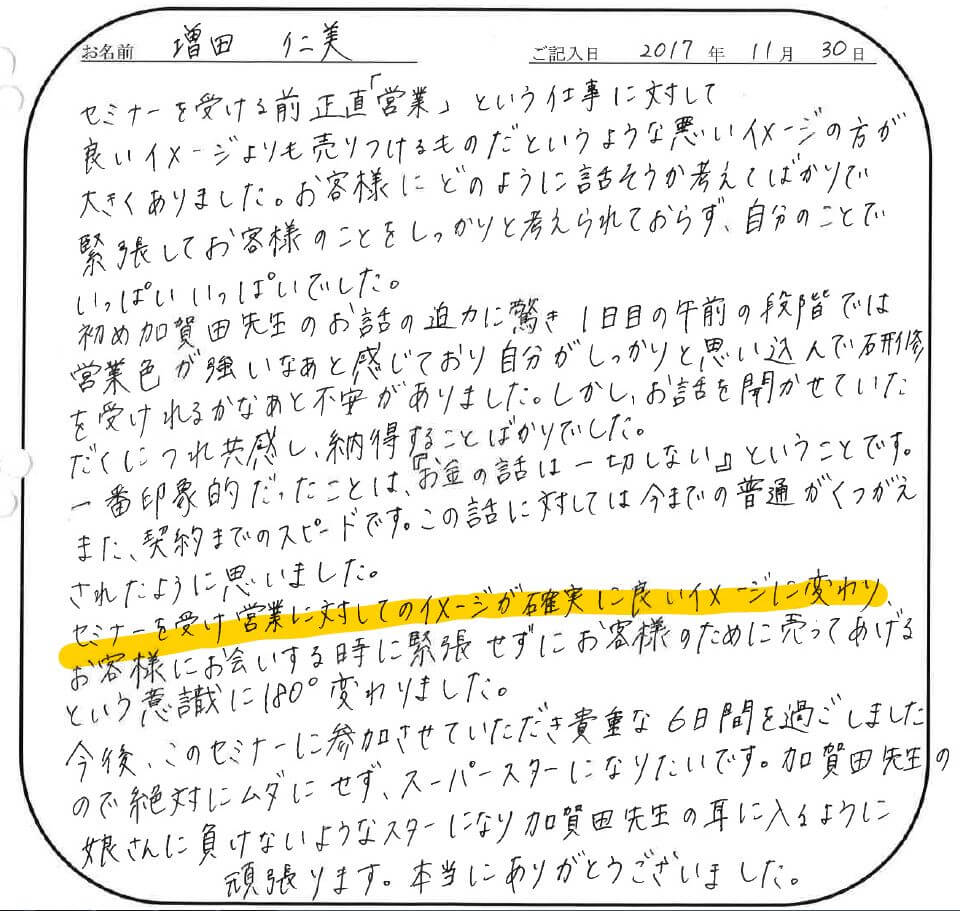 お名前 増田 仁美 ご記入日 2017年 11月 30日
セミナーを受ける前正直「営業」という仕事に対して
良いイメージよりも売りつけるものだというような悪いイメージの方が
大きくありました。お客様にどのように話そうか考えてばかりで
緊張してお客様のことをしっかりと考えられておらず、自分のことで
いっぱいいっぱいでした。
初め加賀田先生のお話の迫力に驚き1日目の午前の段階では
営業色が強いなあと感じており自分がしっかりと思い込んで研修
を受けれるかなあと不安がありました。しかし、お話を聞かせていた
だくにつれ共感し、納得することばかりでした。
一番印象的だったことは、『お金の話は一切しない』ということです。
また、契約までのスピードです。この話に対しては今までの普通がくつがえ
されたように思いました。
セミナーを受け営業に対してのイメージが確実に良いイメージに変わり、
お客様にお会いする時に緊張せずにお客様のために売ってあげる
という意識に180°変わりました。
今後、このセミナーに参加させていただき貴重な6日間を過ごしました
ので絶対にムダにせず、スーパースターになりたいです。加賀田先生の
娘さんに負けないようなスターになり加賀田先生の耳に入るように
頑張ります。本当にありがとうございました。